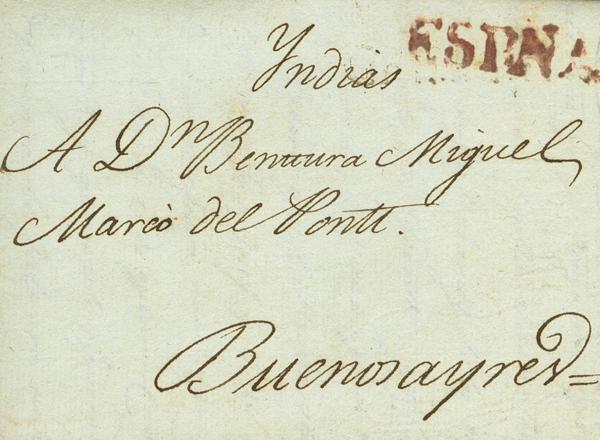 Yndias
ESPNA
A Dn Bentura Miguel
Marcò del Pontt.
Buenosayres=